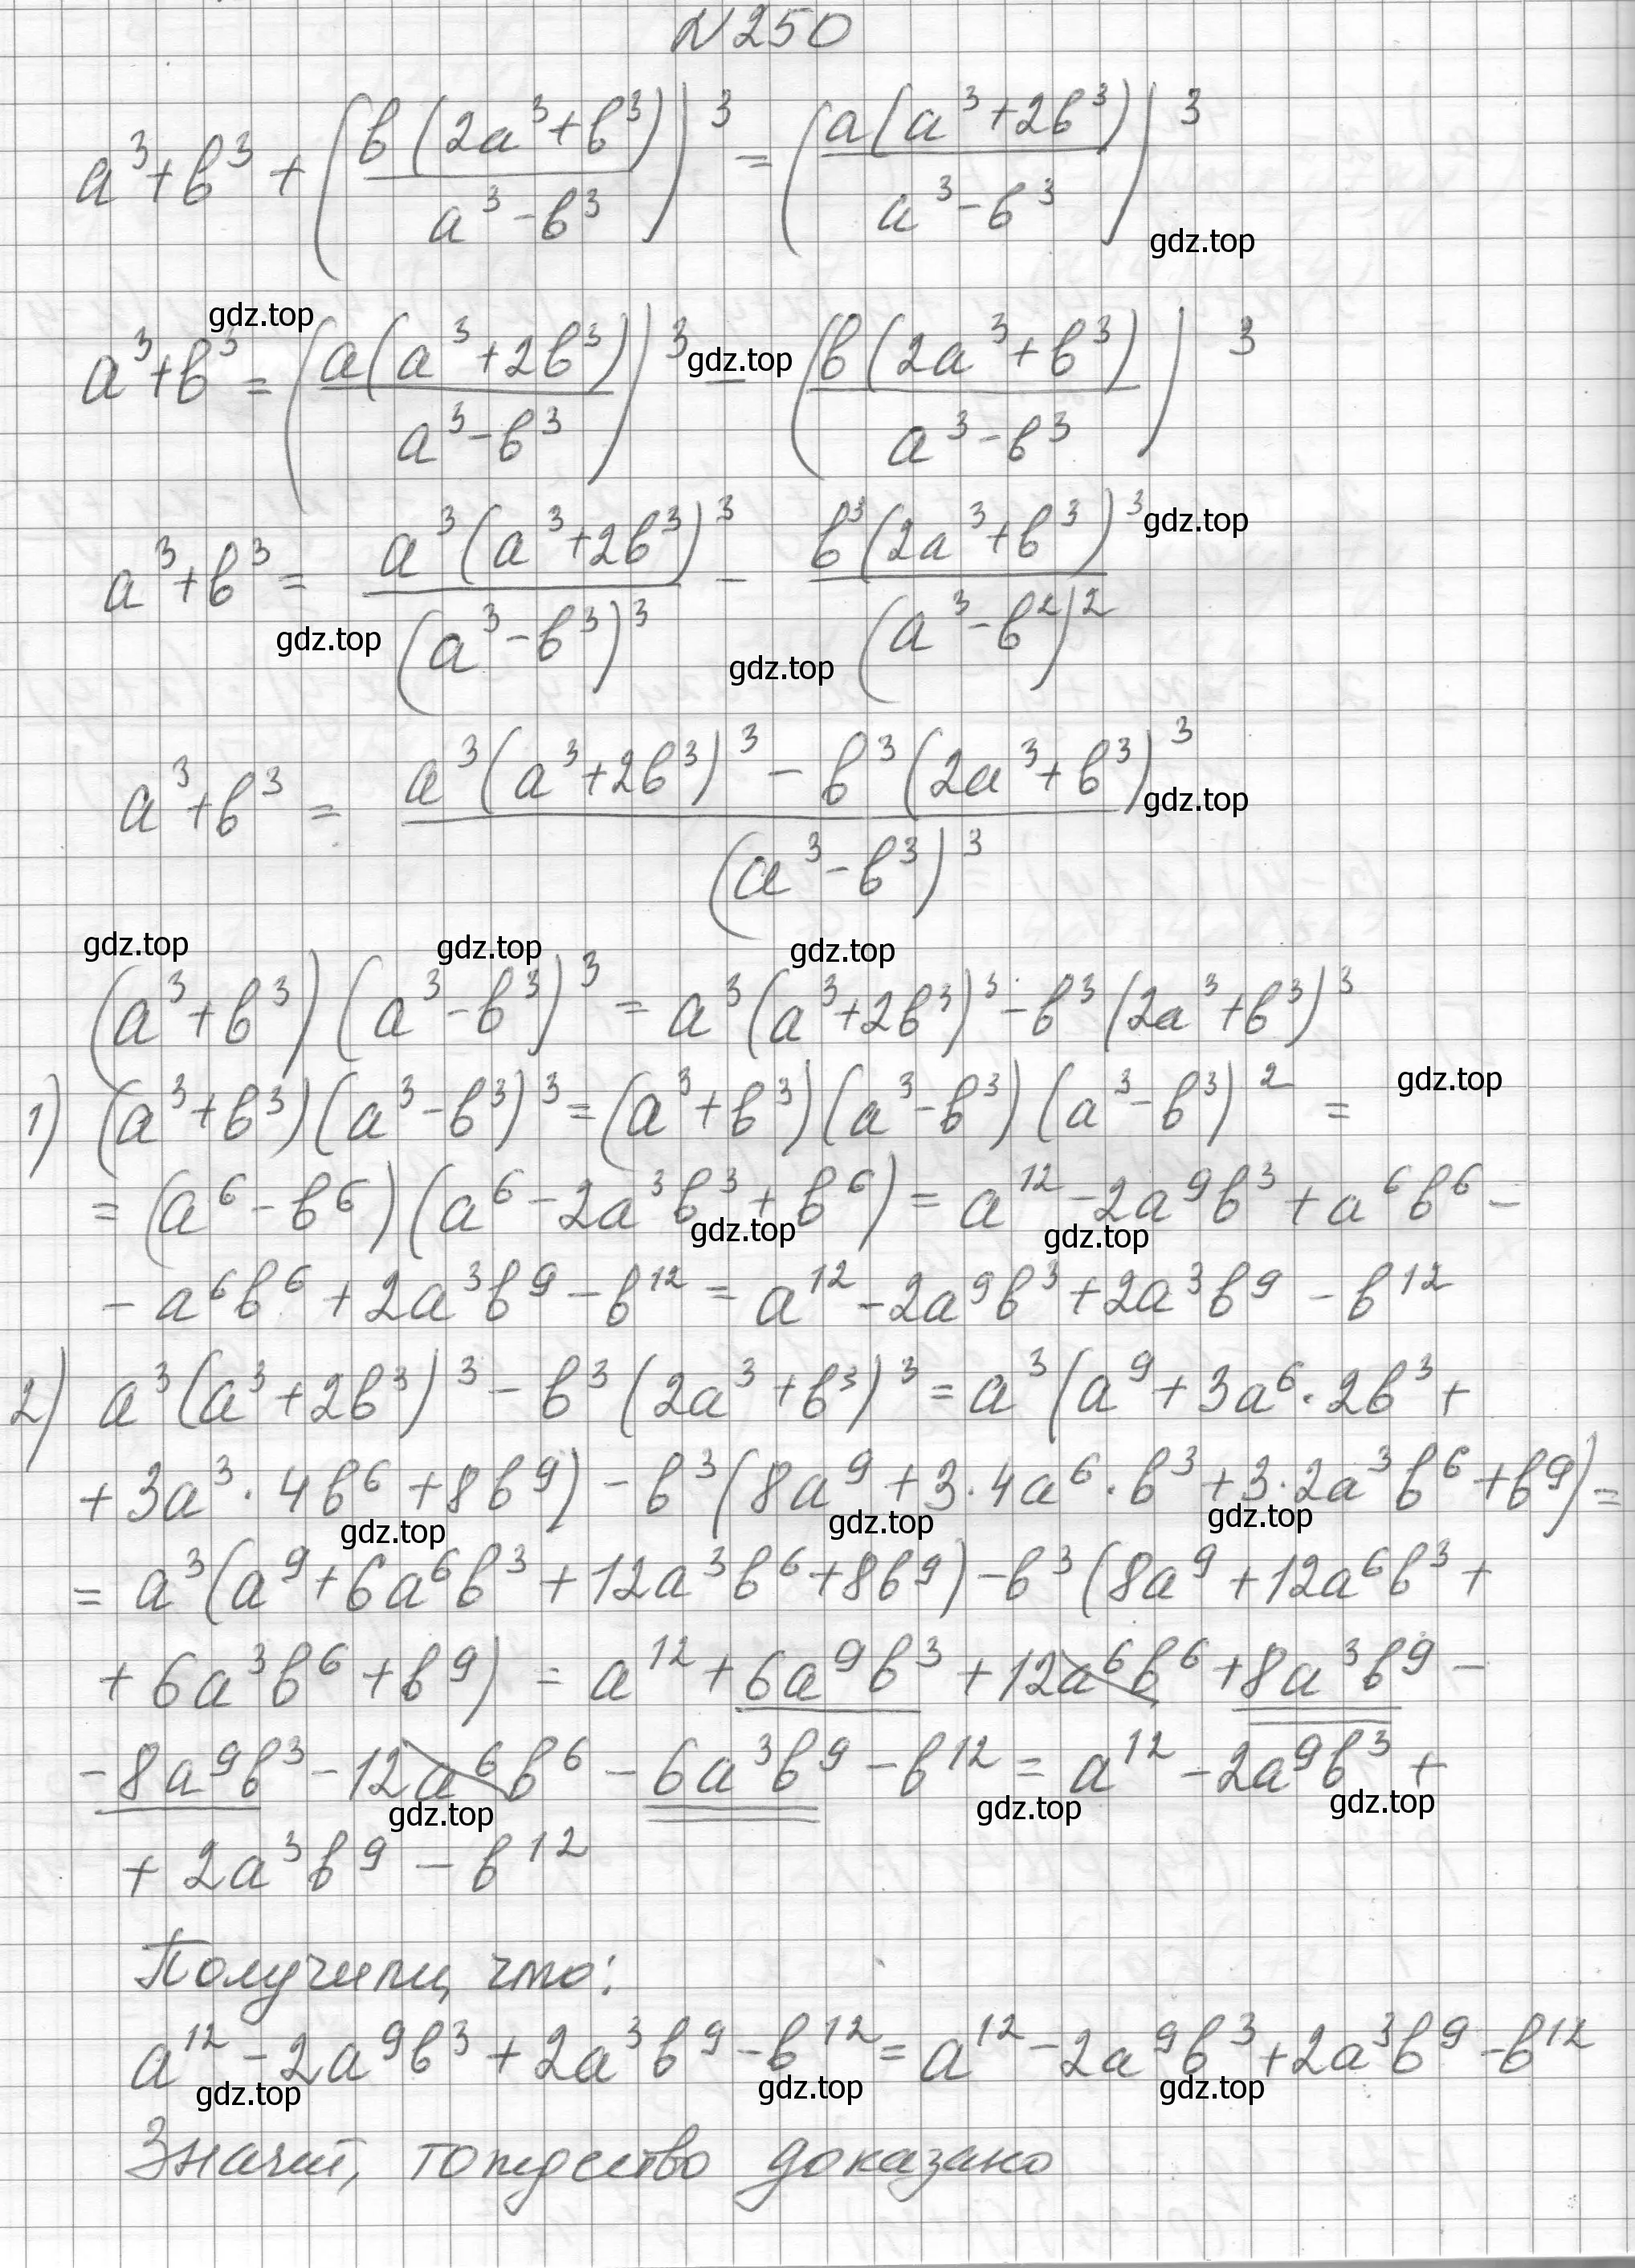 №250
a³+b³+(b(2a³+b³)/a³-b³)³=(a(a³+2b³)/a³-b³)³
gdz.top
gdz.top
a³+b³=(a(a³+2b³)/a³-b³)³-(b(2a³+b³)/a³-b³)³
gdz.top
a³+b³=a³(a³+2b³)³/(a³-b³)³-b³(2a³+b³)³/(a³-b²)²
gdz.top
gdz.top
gdz.top
a³+b³=a³(a³+2b³)³-b³(2a³+b³)³/(a³-b³)³
gdz.top
gdz.top gdz.top gdz.top
(a³+b³)(a³-b³)³=a³(a³+2b³)³-b³(2a³+b³)³
1) (a³+b³)(a³-b³)³=(a³+b³)(a³-b³)(a³-b³)²=
gdz.top
=(a⁶-b⁶)(a⁶-2a³b³+b⁶)=a¹²-2a⁹b³+a⁶b⁶-
gdz.top gdz.top
-a⁶b⁶+2a³b⁹-b¹²=a¹²-2a⁹b³+2a³b⁹-b¹²
2) a³(a³+2b³)³-b³(2a³+b³)³=a³(a⁹+3a⁶·2b³+
+3a³·4b⁶+8b⁹)-b³(8a⁹+3·4a⁶·b³+3·2a³b⁶+b⁹)=
gdz.top gdz.top gdz.top
=a³(a⁹+6a⁶b³+12a³b⁶+8b⁹)-b³(8a⁹+12a⁶b³+
+6a³b⁶+b⁹)=a¹²+6a⁹b³+12a⁶b⁶+8a³b⁹-
-8a⁹b³-12a⁶b⁶-6a³b⁹-b¹²=a¹²-2a⁹b³+
gdz.top gdz.top gdz.top
+2a³b⁹-b¹²
Получили, что:
a¹²-2a⁹b³+2a³b⁹-b¹²=a¹²-2a⁹b³+2a³b⁹-b¹²
gdz.top gdz.top gdz.top
Значит, тождество доказано